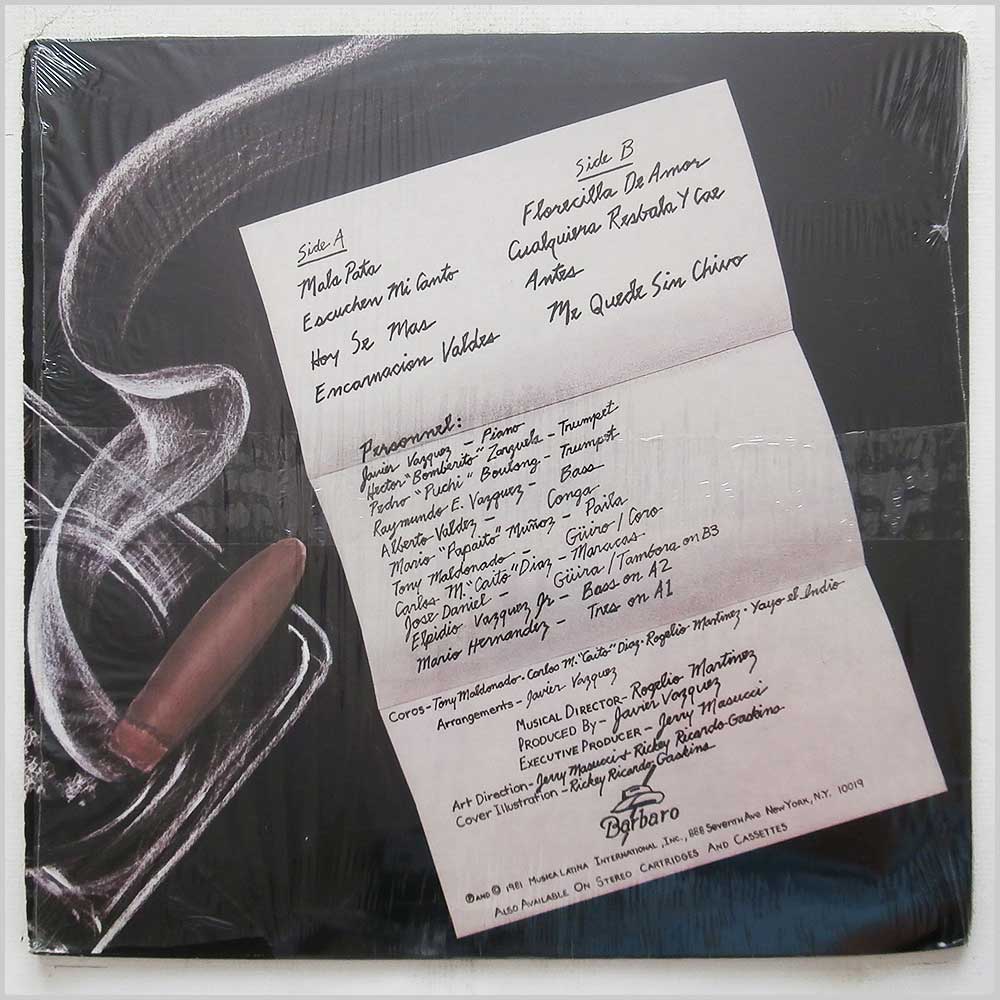 Side A
Mala Pata
Escuchen Mi Canto
Hoy Se Mas
Encarnacion Valdes
Side B
Florecilla De Amor
Cualquiera Resbala Y Cae
Antes
Me Quede Sin Chivo
Personnel:
Javier Vazquez - Piano
Hector "Bomberito" Zarzuela - Trumpet
Pedro "Puchi" Boulong - Trumpet
Raymundo E. Vazquez - Bass
Alberto Valdez - Conga
Mario "Papaito" Muñoz - Paila
Tony Maldonado - Güiro / Coro
Carlos M. "Caito" Diaz - Maracas
Jose Daniel - Güira / Tambora on B3
Elpidio Vazquez Jr - Bass on A2
Mario Hernandez - Tres on A1
Coros - Tony Maldonado · Carlos M. "Caito" Diaz · Rogelio Martinez · Yayo el Indio
Arrangements - Javier Vazquez
MUSICAL DIRECTOR - Rogelio Martinez
PRODUCED BY - Javier Vazquez
EXECUTIVE PRODUCER - Jerry Masucci
Art Direction - Jerry Masucci & Rickey Ricardo Gaskins
Cover Illustration - Rickey Ricardo Gaskins
Barbaro
℗ AND © 1981 MUSICA LATINA INTERNATIONAL, INC., 888 SEVENTH AVE NEW YORK, N.Y. 10019
ALSO AVAILABLE ON STEREO CARTRIDGES AND CASSETTES